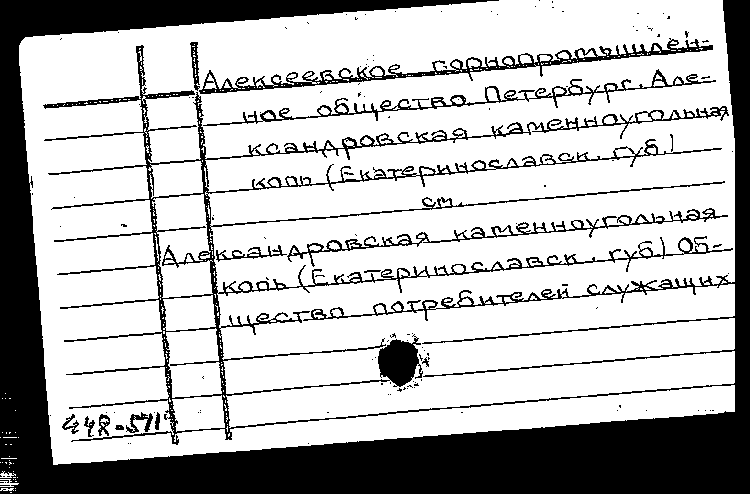 Алексеевское горнопромышлен-
ное общество. Петербург. Але-
ксандровская каменноугольная
копь (Екатеринославск. губ.)
см.
Александровская каменноугольная
копь (Екатеринославск. губ.) Об-
щество потребителей служащих
448-571